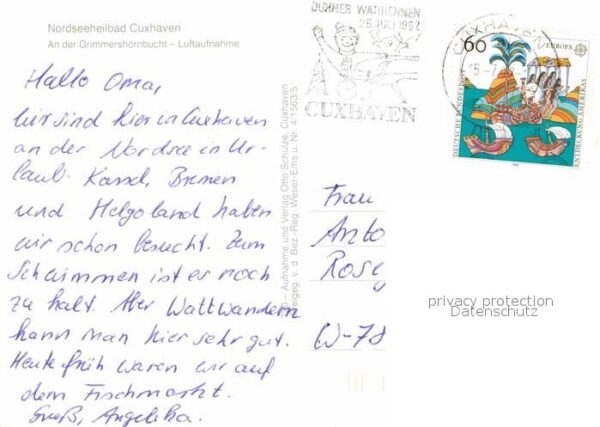 Nordseeheilbad Cuxhaven
An der Grimmershörnbucht – Luftaufnahme
Hallo Oma,
wir sind hier in Cuxhaven
an der Nordsee in Ur-
laub. Kassel, Bremen
und Helgoland haben
wir schon besucht. Zum
Schwimmen ist es noch
zu kalt. Aber Wattwandern
kann man hier sehr gut.
Heute früh waren wir auf
dem Fischmarkt.
Gruß, Angelika.
– Aufnahme und Verlag Otto Schulze, Cuxhaven
freigeg. v. d. Bez.-Reg. Weser-Ems u. Nr. 4/7563/5
DUHNER WATTRENNEN
26. JULI 1992
CUXHAVEN
CUXHAVEN
60
EUROPA
DEUTSCHE BUNDESPOST
ENTDECKUNG AMERIKAS
Frau
Anto
Rose
W-78
privacy protection
Datenschutz